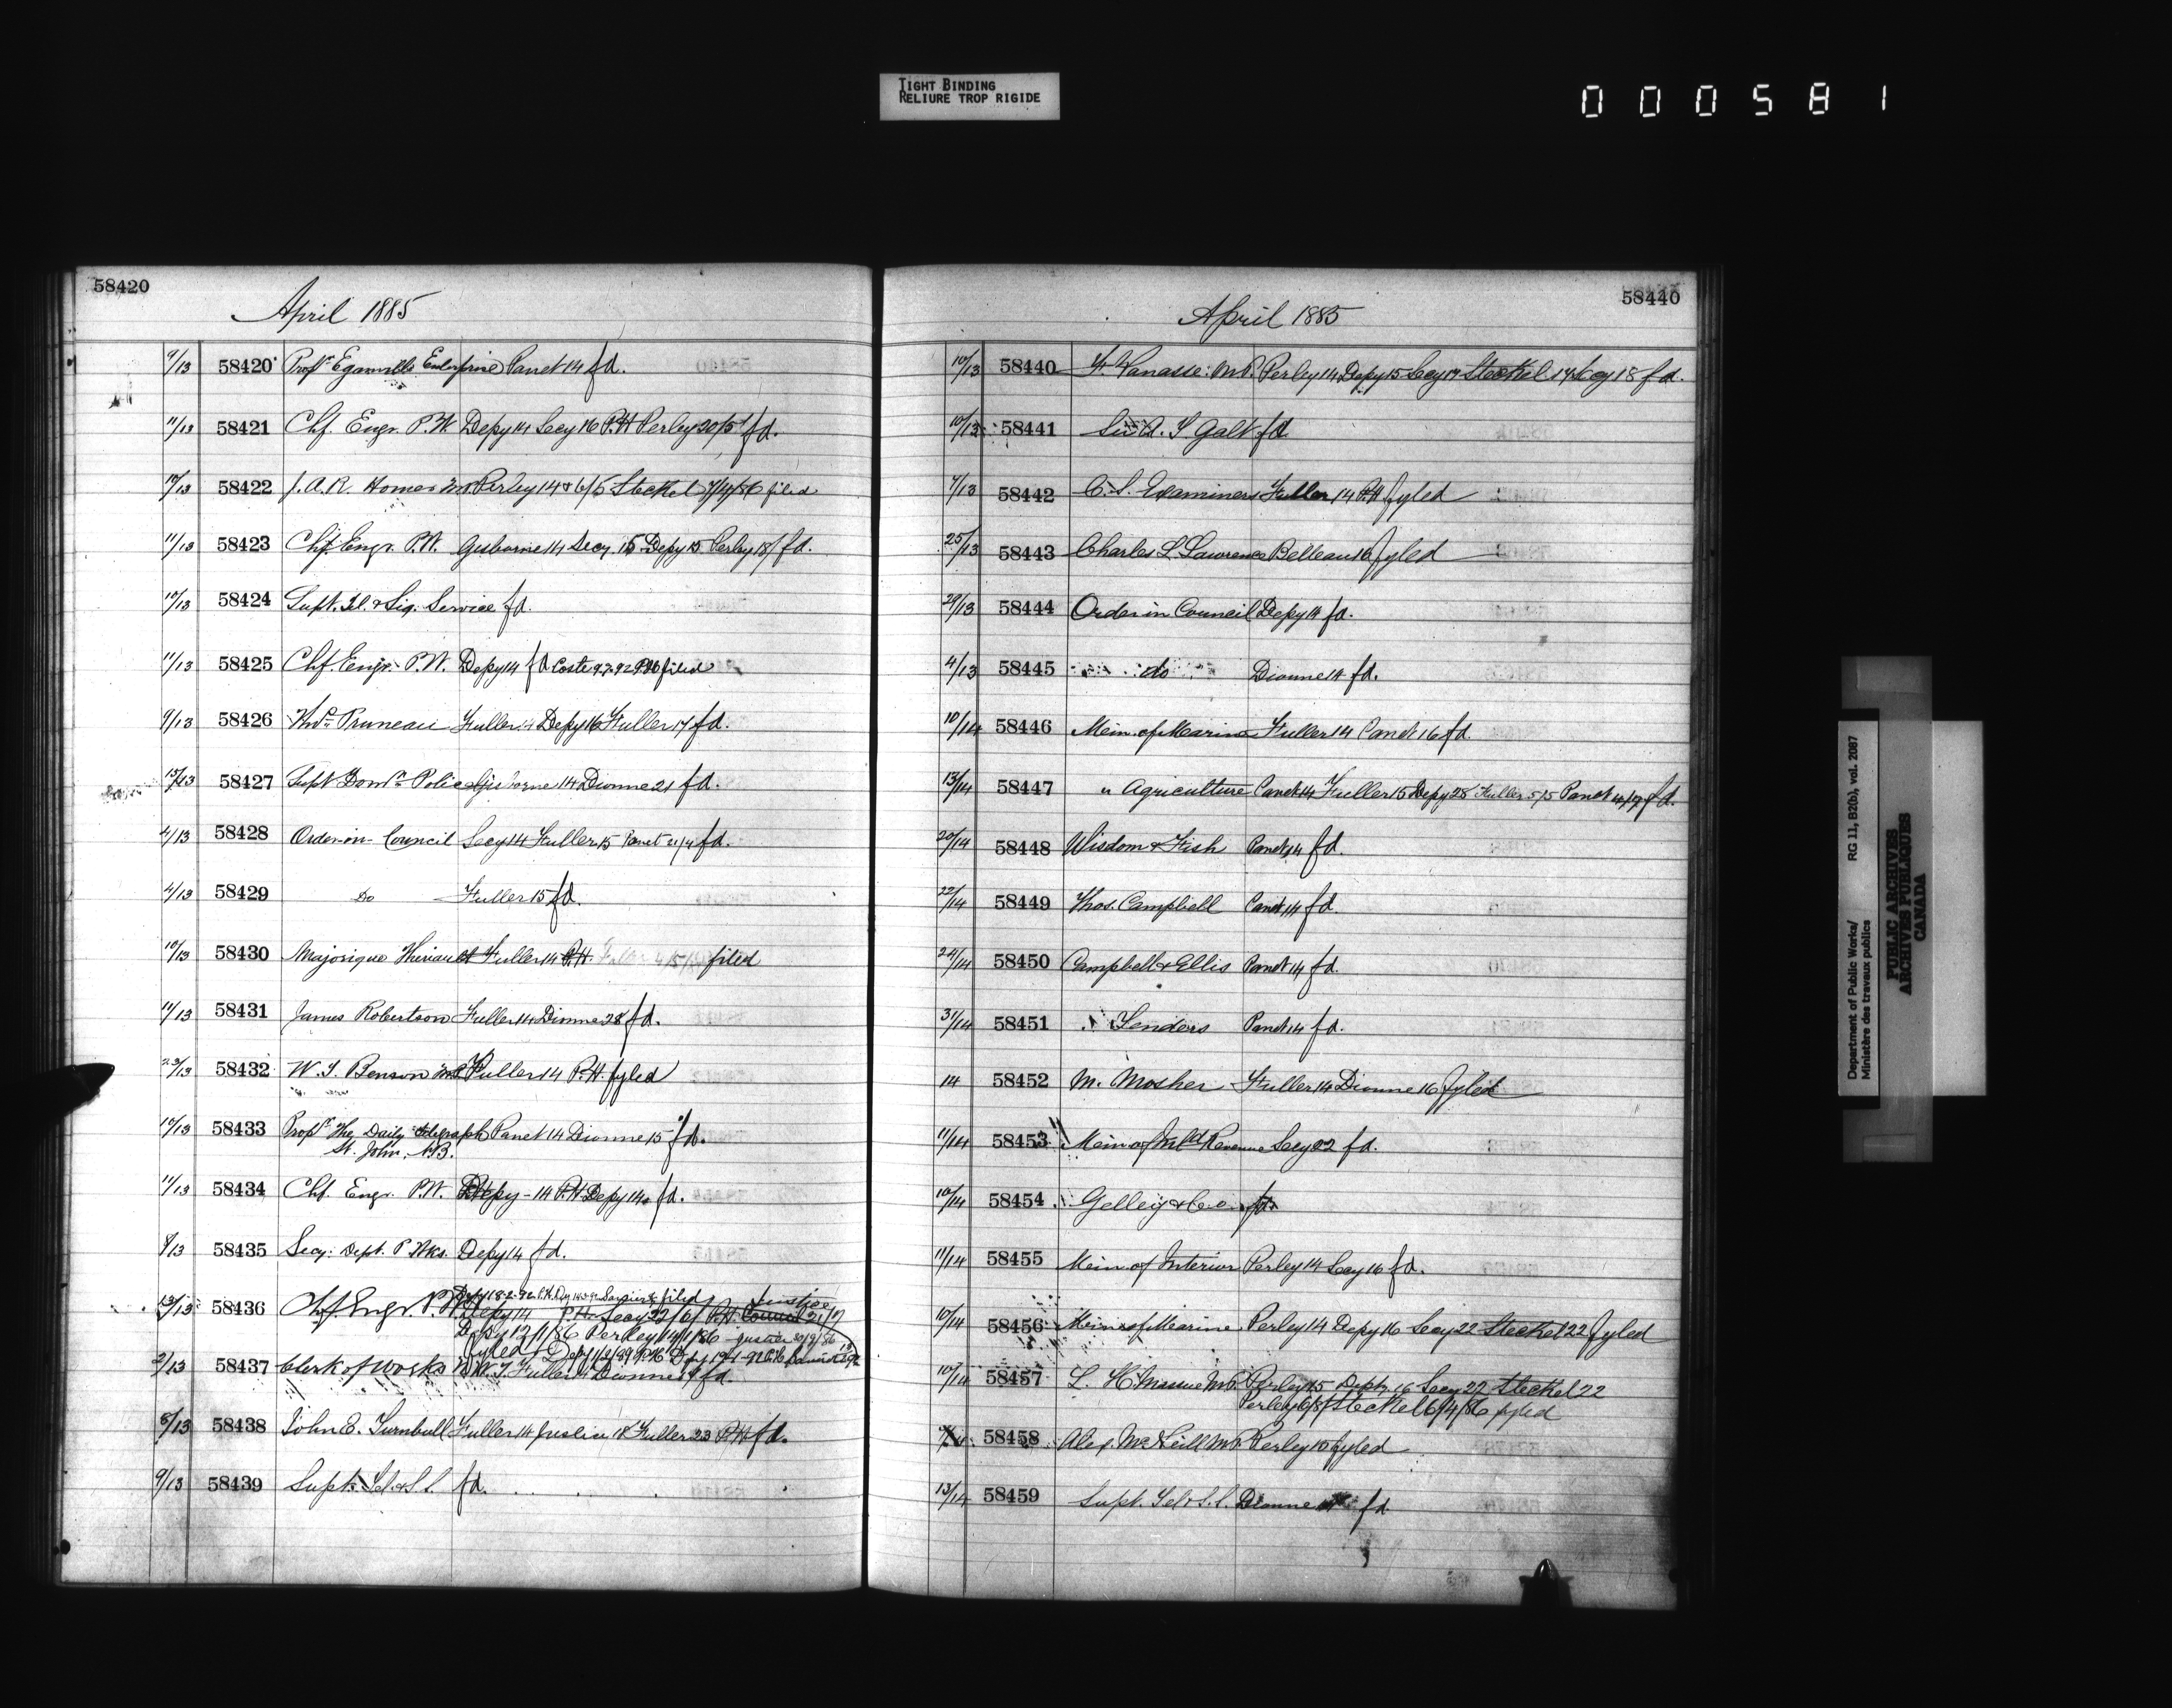 TIGHT BINDING
RELIURE TROP RIGIDE
000581
58420
April 1885
9/13 58420 Propr Eganville Enterprise Panet 14 fd.
11/13 58421 Chf. Engr. P.W. Depy 14 Secy 16 P.H Perley 20/5 fd.
58422 J.A.R. Homer M.P. Perley 14 & 6/5 Steckel 7/4/86 filed
11/13 58423 Chf. Engr. P.W. Gisborne 14 Secy 15 Depy 15 Perley 18/ fd.
10/13 58424 Supt. Tel. & Sig. Service fd.
11/13 58425 Chf. Engr. P.W. Depy 14 fd Coste PH filed
9/13 58426 Pruneau Fuller 14 Depy 16 Fuller 17 fd.
13/13 58427 Supt Domn Police Gisborne 14 Dionne 21 fd.
4/13 58428 Order-in-Council Secy 14 Fuller 15 Panet 21/4 fd.
4/13 58429 Do Fuller 15 fd.
10/13 58430 Majorique Theriault Fuller 14 P.H. Fuller filed
11/13 58431 James Robertson Fuller 14 Dionne 28 fd.
23/13 58432 W. T. Benson M.P. Fuller 14 P.H. fyled
10/13 58433 Propr The Daily Telegraph Panet 14 Dionne 15 fd.
St. John, N.B.
11/13 58434 Chf. Engr. P.W. Depy - 14 P.H. Depy 14 fd.
8/13 58435 Secy. Dept. P. Wks. Depy 14 fd.
filed Justice
13/13 58436 Chf. Engr. P.W. Depy 14 P.H. Secy 22/6/ P.H. Council 21/17
Depy 12/1/86 Perley 14/1/86 Justice
fyled
2/13 58437 Clerk of Works N.W.T. Fuller 14 Dionne fd.
8/13 58438 John E. Turnbull Fuller 14 Justice 18 Fuller 23 P.H fd.
9/13 58439 Supt. Tel. & S.S. fd.
58440
April 1885
10/13 58440 F. Vanasse M.P. Perley 14 Depy 15 Secy 17 Steckel 17 Secy 18 fd.
10/13 58441 Sir A. T. Galt fd
7/13 58442 C. S. Examiners Fuller 14 P.H fyled
25/13 58443 Charles L. Lawrence Belleau 16 fyled
29/13 58444 Order in Council Depy 14 fd.
4/13 58445 do Dionne 14 fd.
10/14 58446 Mein. of Marine Fuller 14 Panet 16 fd.
13/14 58447 " Agriculture Panet 14 Fuller 15 Depy 28 Fuller 5/5 Panet fd.
20/14 58448 Wisdom & Fish Panet 14 fd.
22/14 58449 Thos. Campbell Panet 14 fd.
24/14 58450 Campbell & Ellis Panet 14 fd.
31/14 58451 Tenders Panet 14 fd.
14 58452 M. Mosher Fuller 14 Dionne 16 fyled
11/14 58453 Mein of Inld Revenue Secy 22 fd.
10/14 58454 Gelley & Co. fd.
11/14 58455 Mein of Interior Perley 14 Secy 16 fd.
10/14 58456 Mein of Marine Perley 14 Depy 16 Secy 22 Steckel 22 fyled
10/14 58457 L. H. Massue M.P. Perley 15 Depty 16 Secy 22 Steckel 22
Perley 6/8/ Steckel 6/4/86 fyled
58458 Alex. McNeill M.P. Perley 15 fyled
13/14 58459 Supt. Tel & S.S. Dionne fd
Department of Public Works/ RG 11, B2(b), vol. 2087
Ministère des travaux publics
PUBLIC ARCHIVES
ARCHIVES PUBLIQUES
CANADA